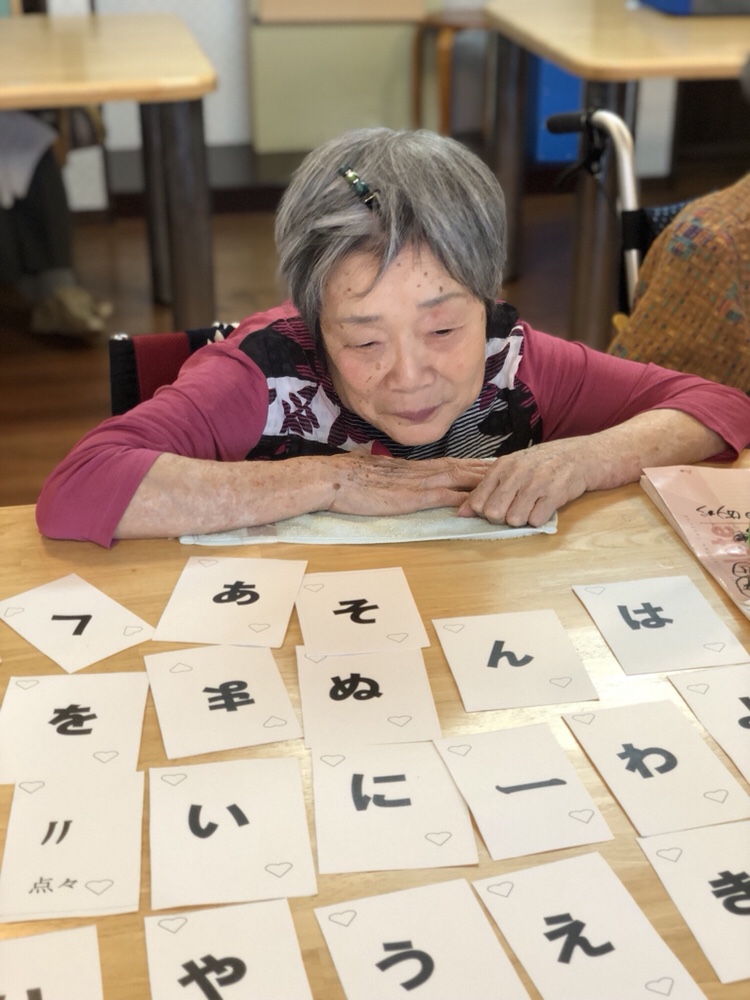 あ
そ
ん
は
を
ぬ
わ
〃
点々
い
に
ー
き
や
う
え